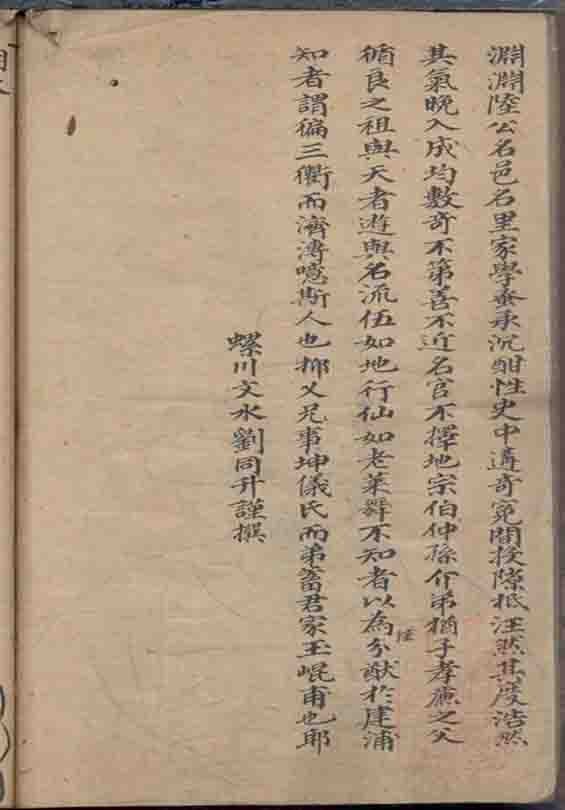 淵淵陸公名邑名里家學泰承沉酣性史中遘奇冤開授隙抵汪然其度浩然
其氣晚入成均數奇不第善不近名官不擇地宗伯仲孫介弟猶子孝廉之父
循良之祖與天者遊與名流伍如地行仙如老萊舞不知者以為分猷於建浦
知者謂偏三衢而濟溥噫斯人也抑又兄事坤儀氏而弟畜君家玉崐甫也耶
螺川文水劉同升謹撰